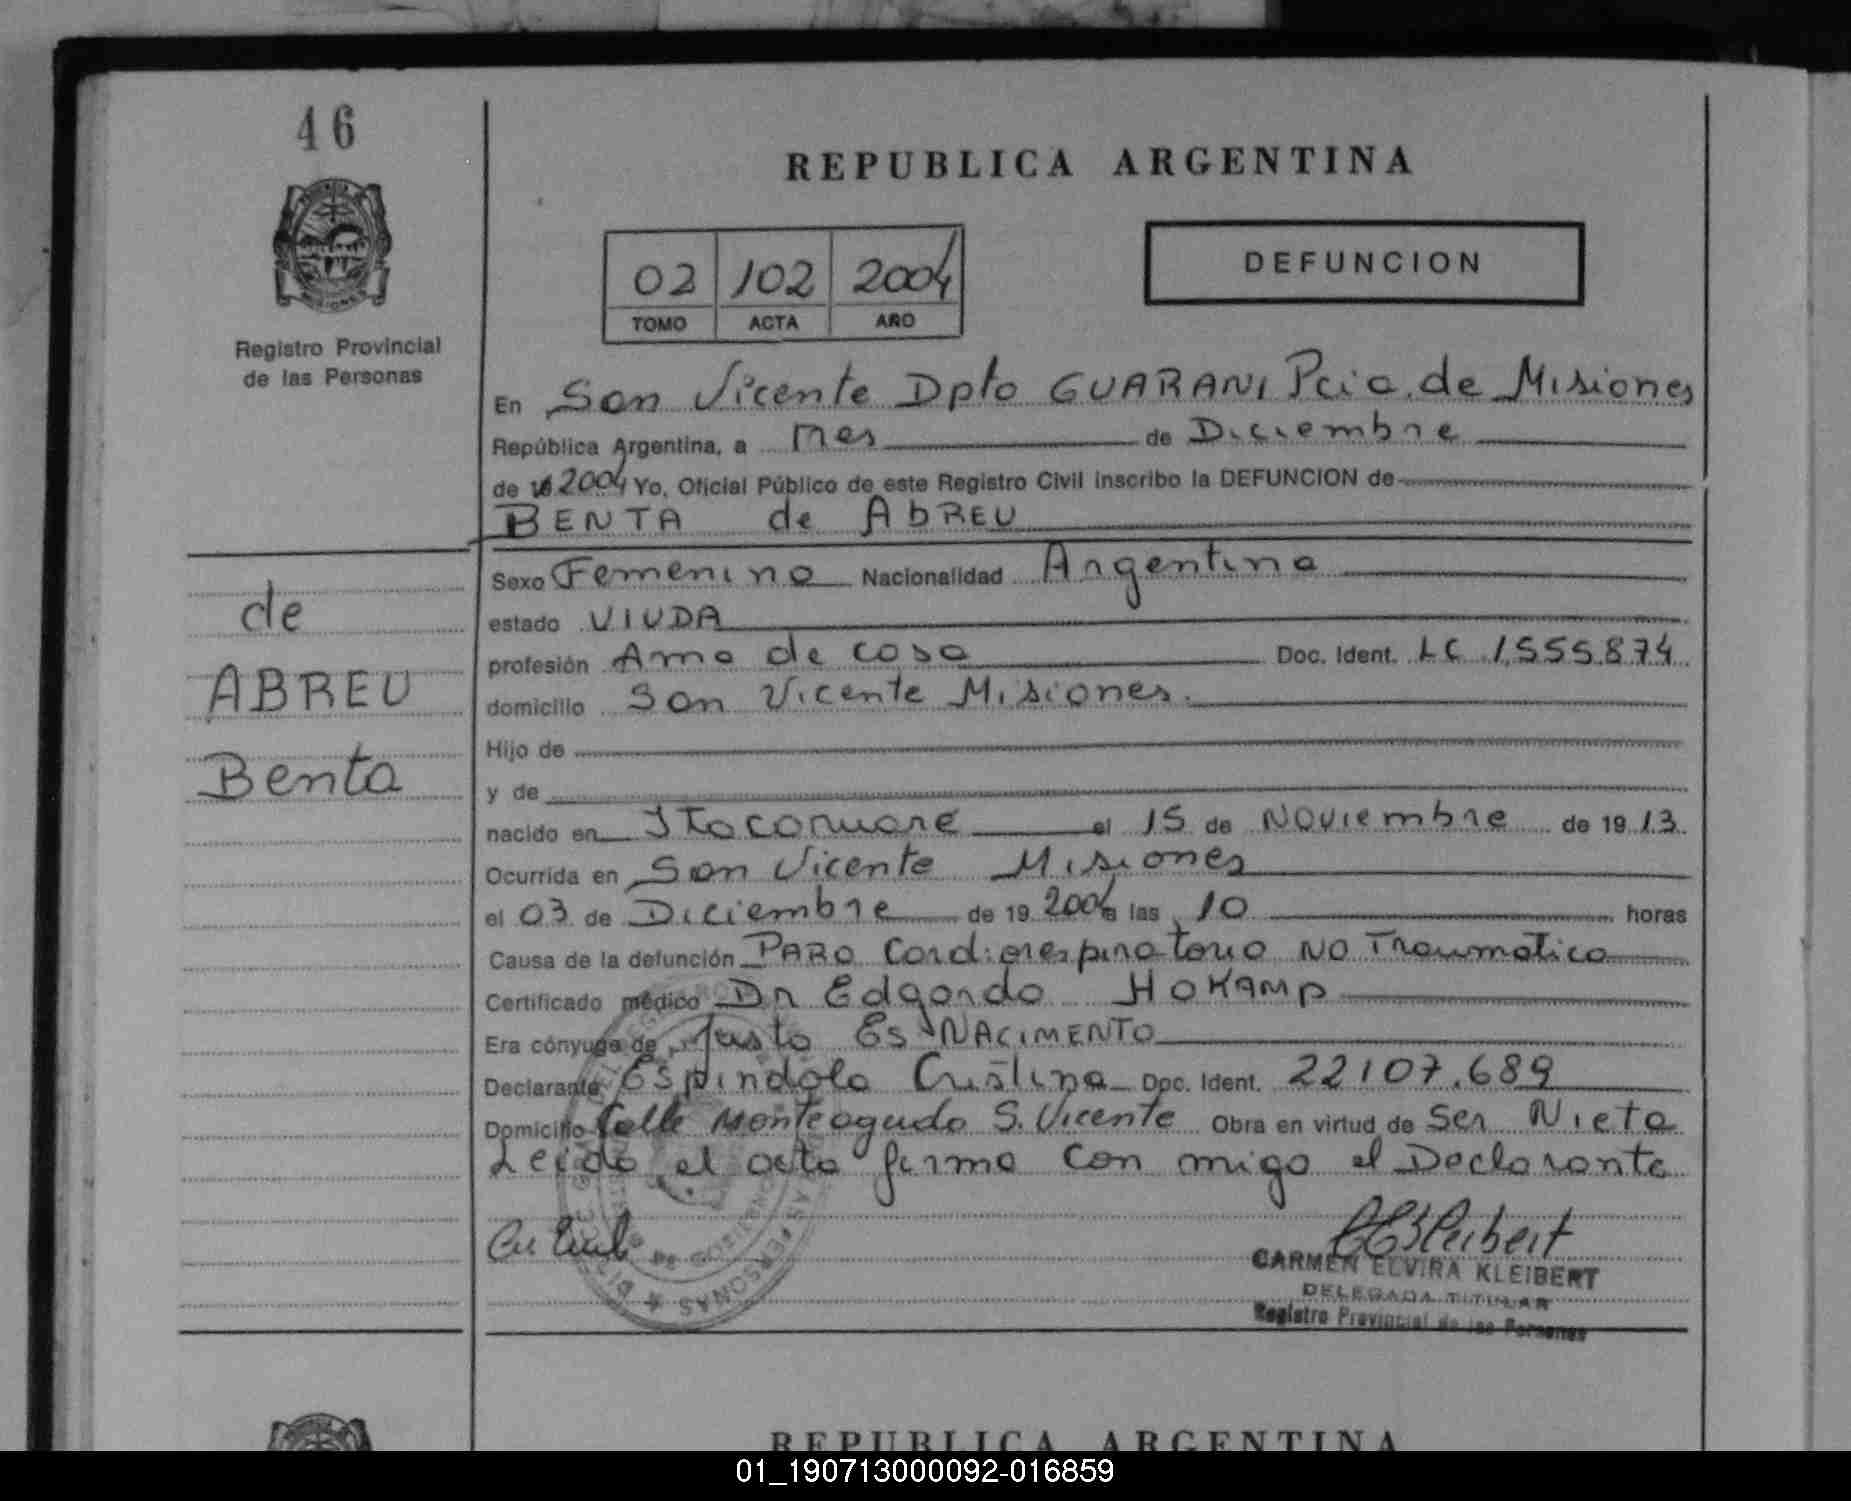 46
REPUBLICA ARGENTINA
02 102 2004
TOMO ACTA AÑO
DEFUNCION
Registro Provincial
de las Personas
En San Vicente Dpto GUARANI Pcia. de Misiones
República Argentina, a Tres de Diciembre
de 2004 Yo, Oficial Público de este Registro Civil inscribo la DEFUNCION de
BENTA de AbREU
de
ABREU
Benta
Sexo Femenino Nacionalidad Argentina
estado VIUDA
profesión Ama de casa Doc. Ident. LC 1.555.874
domicilio San Vicente Misiones.
Hijo de
y de
nacido en Itacaruare el 15 de Noviembre de 1913
Ocurrida en San Vicente Misiones
el 03 de Diciembre de 19 2004 a las 10 horas
Causa de la defunción PARO Cardiorespiratorio NO Traumatico
Certificado médico Dr Edgardo HOKAMP
Era cónyuge de Justo Es NACIMENTO
Declarante Espindola Cristina Doc. Ident. 22107.689
Domicilio Calle Monteagudo S. Vicente Obra en virtud de Ser Nieta
Leida el acta firma con migo el Declarante
CARMEN ELVIRA KLEIBERT
DELEGADA TITULAR
Registro Provincial de las Personas
REPUBLICA ARGENTINA
01_190713000092-016859